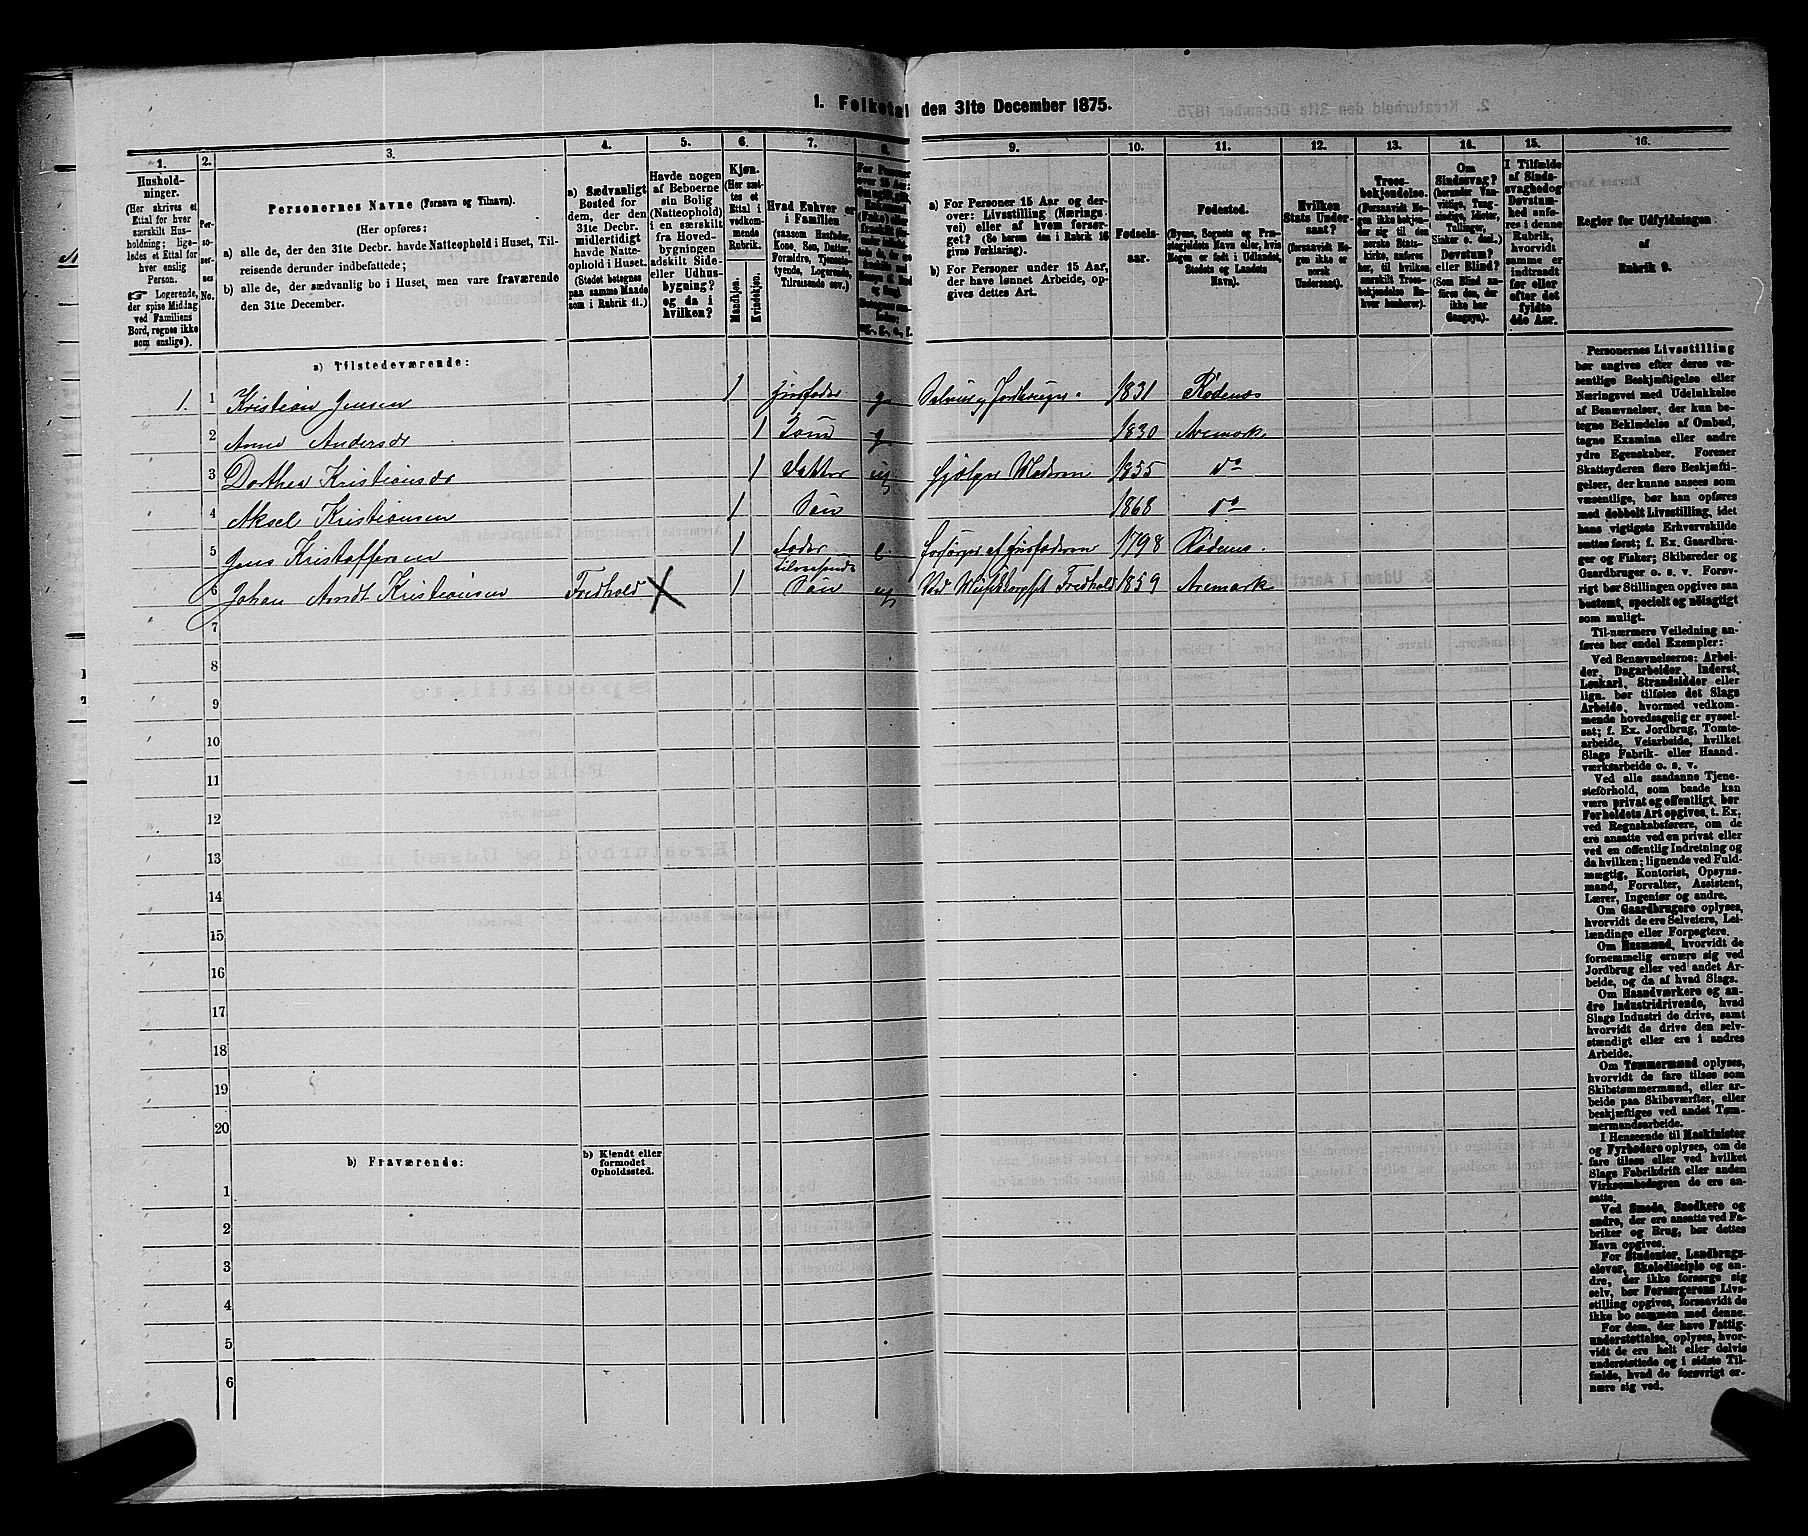 1. Folketal den 31te December 1875.
1. 2. 3. 4. 5. 6. 7. 8. 9. 10. 11. 12. 13. 14. 15. 16.
Hushold-
ninger.
(Her skrives et
Ettal for hver
særskilt Hus-
holdning; lige-
ledes et Ettal for
hver enslig
Person.
☞ Logerende,
der spise Middag
ved Familiens
Bord, regnes ikke
som enslige).
Per-
so-
ner-
nes
No.
Personernes Navne (Fornavn og Tilnavn).
(Her opføres:
a) alle de, der den 31te Decbr. havde Natteophold i Huset, Til-
reisende derunder indbefattede;
b) alle de, der sædvanlig bo i Huset, men vare fraværende
den 31te December.
a) Sædvanligt
Bosted for
dem, der den
31te Decbr.
midlertidigt
havde Natte-
ophold i Huset.
(Stedet betegnes
paa samme Maade
som i Rubrik 11.)
Havde nogen
af Beboerne
sin Bolig
(Natteophold)
i en særskilt
fra Hoved-
bygningen
adskilt Side-
eller Udhus-
bygning?
og da i
hvilken?
Kjøn.
(Her sæt-
tes et
Ettal i
vedkom-
mende
Rubrik.
Mandkjøn.
Kvindekjøn.
Hvad Enhver er
i Familien
(saasom Husfader,
Kone, Søn, Datter,
Forældre, Tjeneste-
tyende, Logerende,
Tilreisende osv.)
a) For Personer 15 Aar og der-
over: Livsstilling (Nærings-
vei) eller af hvem forsør-
get? (Se herom den i Rubrik 16
givne Forklaring).
b) For Personer under 15 Aar,
der have lønnet Arbeide, op-
gives dettes Art.
Fødsels-
aar.
Fødested.
(Byens, Sognets og Præ-
stegjeldets Navn eller, hvis
Nogen er født i Udlandet,
Stedets og Landets
Navn).
Hvilken
Stats Under-
saat?
(forsaavidt No-
gen ikke er
norsk
Undersaat).
Troes-
bekjendelse.
(Forsaavidt No-
gen ikke bekjen-
der sig til den
norske Stats-
kirke, anføres
her, til hvilken
særskilt Troes-
bekjendelse En-
hver henhører).
Om
Sindssvag?
(herunder Van-
vittige, Tung-
sindige, Idioter,
Tullinger,
Sinker o. desl.)
Døvstum?
eller Blind?
(Som Blind an-
føres den, der
ikke har
Gangsyn).
I Tilfælde
af Sinds-
svaghed og
Døvstum-
hed anfø-
res i denne
Rubrik,
hvorvidt
samme er
indtraadt
før eller
efter det
fyldte
4de Aar.
Regler for Udfyldningen
af
Rubrik 9.
a) Tilstedeværende:
1. 1 Kristian Jensen 1 Husfader g. Selveier, Jordbruger. 1831 Rødenes
2 Anne Andersdr 1 Kone g. 1830 Aremark
3 Dorthea Kristiansdr 1 Datter ug Hjælper Moderen 1855 do
4 Aksel Kristiansen 1 Søn 1868 do
5 Jens Kristoffersen 1 Fader e. forsørges af Husfaderen 1798 Rødenes.
6 Johan Arndt Kristiansen Fredhald X 1 tilreisende Søn ug Ved Musikkorpset Fredhald 1859 Aremark
7
8
9
10
11
12
13
14
15
16
17
18
19
20
b) Fraværende:
b) Kjendt eller
formodet
Opholdssted.
1
2
3
4
5
6
Personernes Livsstilling
bør angives efter deres væ-
sentlige Beskjæftigelse eller
Næringsvei med Udelukkelse
af Benævnelser, der kun be-
tegne Beklædelse af Ombud,
tagne Examina eller andre
ydre Egenskaber. Forener
Skatteyderen flere Beskjæfti-
gelser, der kunne ansees som
væsentlige, bør han opføres
med dobbelt Livsstilling, idet
hans vigtigste Erhvervskilde
sættes først; f. Ex. Gaardbru-
ger og Fisker; Skibsreder og
Gaardbruger o. s. v. Forøv-
rigt bør Stillingen opgives saa
bestemt, specielt og nøiagtigt
som muligt.
Til nærmere Veiledning an-
føres her endel Exempler:
Ved Benævnelserne: Arbei-
der, Dagarbeider, Inderst,
Løskarl, Strandsidder eller
lign. bør tilføies det Slags
Arbeide, hvormed vedkom-
mende hovedsagelig er syssel-
sat; f. Ex. Jordbrug, Tomte-
arbeide, Veiarbeide, hvilket
Slags Fabrik- eller Haand-
værksarbeide o. s. v.
Ved alle saadanne Tjene-
steforhold, som baade kan
være privat og offentligt, bør
Forholdets Art opgives, t. Ex.
ved Regnskabsførere, om de
ere ansatte ved en privat eller
ved en offentlig Indretning og
da hvilken; lignende ved Fuld-
mægtig, Kontorist, Opsyns-
mand, Forvalter, Assistent,
Lærer, Ingeniør og andre.
Om Gaardbrugere oplyses,
hvorvidt de ere Selveiere, Lei-
lændinge eller Forpagtere.
Om Husmænd, hvorvidt de
fornemmelig ernære sig ved
Jordbrug eller ved andet Ar-
beide, og da af hvad Slags.
Om Haandværkere og an-
dre Industridrivende, hvad
Slags Industri de drive, samt
hvorvidt de drive den selv-
stændigt eller ere i andres
Arbeide.
Om Tømmermænd oplyses,
hvorvidt de fare tilsøs som
Skibstømmermænd, eller ar-
beide paa Skibsværfter, eller
beskjæftiges ved andet Tøm-
mermandsarbeide.
I Henseende til Maskinister
og Fyrbødere oplyses, om de
fare tilsøs eller ved hvilket
Slags Fabrikdrift eller anden
Virksomhedsgren de ere an-
satte.
Ved Smede, Snedkere og
andre, der ere ansatte ved Fa-
briker og Brug, bør dettes
Navn opgives.
For Studenter, Landbrugs-
elever, Skoledisciple og an-
dre, der ikke forsørge sig
selv, bør Forsørgerens Livs-
stilling opgives, forsaavidt de
ikke bo sammen med denne.
For dem, der have Fattig-
understøttelse, oplyses, hvor-
vidt de ere helt eller delvis
understøttede og i sidste Til-
fælde, hvad de forøvrigt er-
nære sig ved.